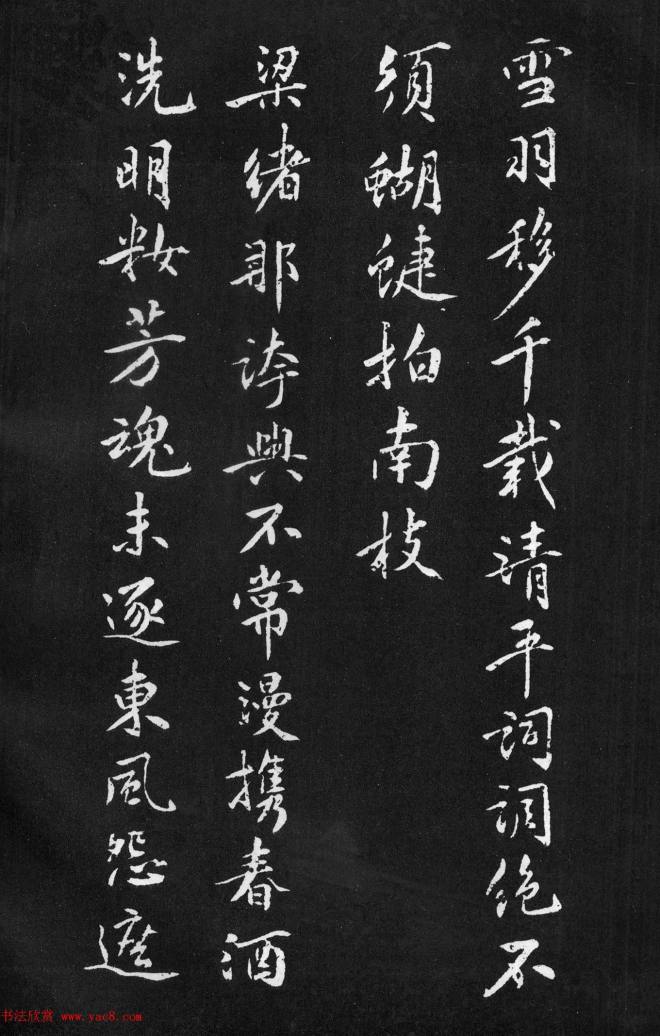 雪羽移千載清平詞調絶不
須蝴蝶拍南枝
梁緒那誇興不常漫携春酒
洗明籹芳魂未逐東風怨遮
书法欣赏 www.yac8.com